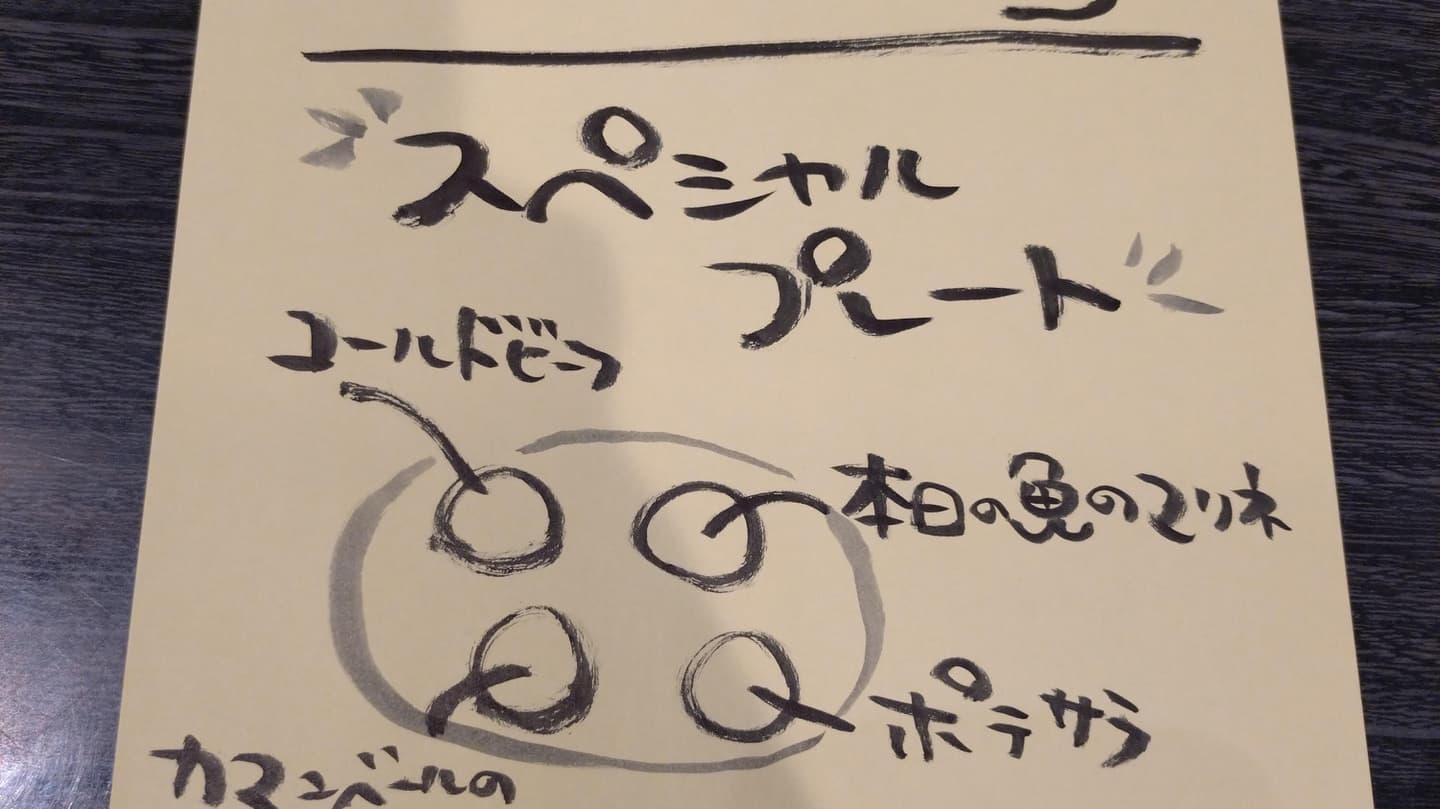 スペシャル
プレート
コールドビーフ
本日の魚のマリネ
ポテサラ
カマンベールの